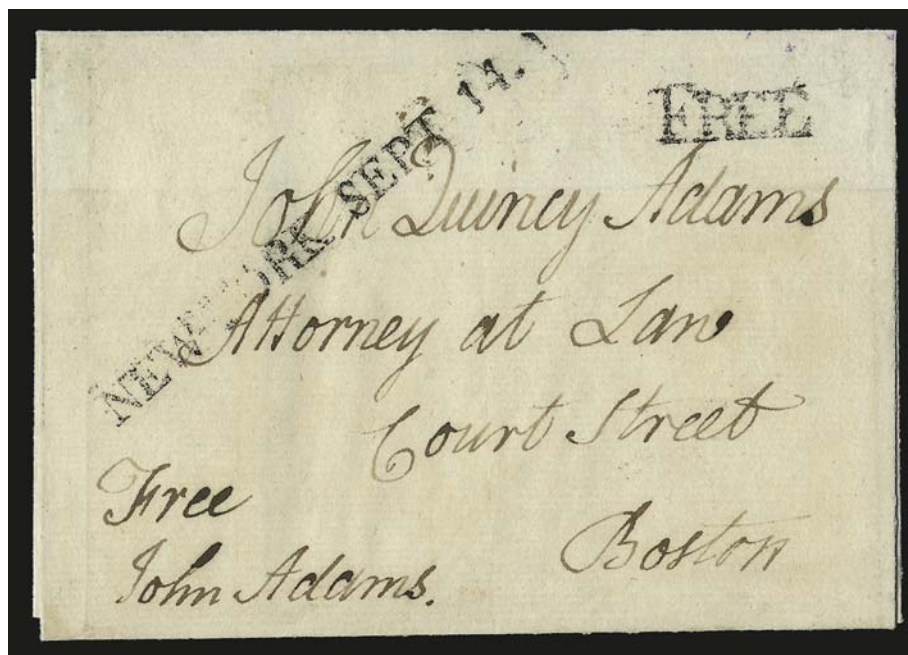 NEW-YORK SEPT 14.
FREE
John Quincy Adams
Attorney at Law
Court Street
Boston
Free
John Adams.